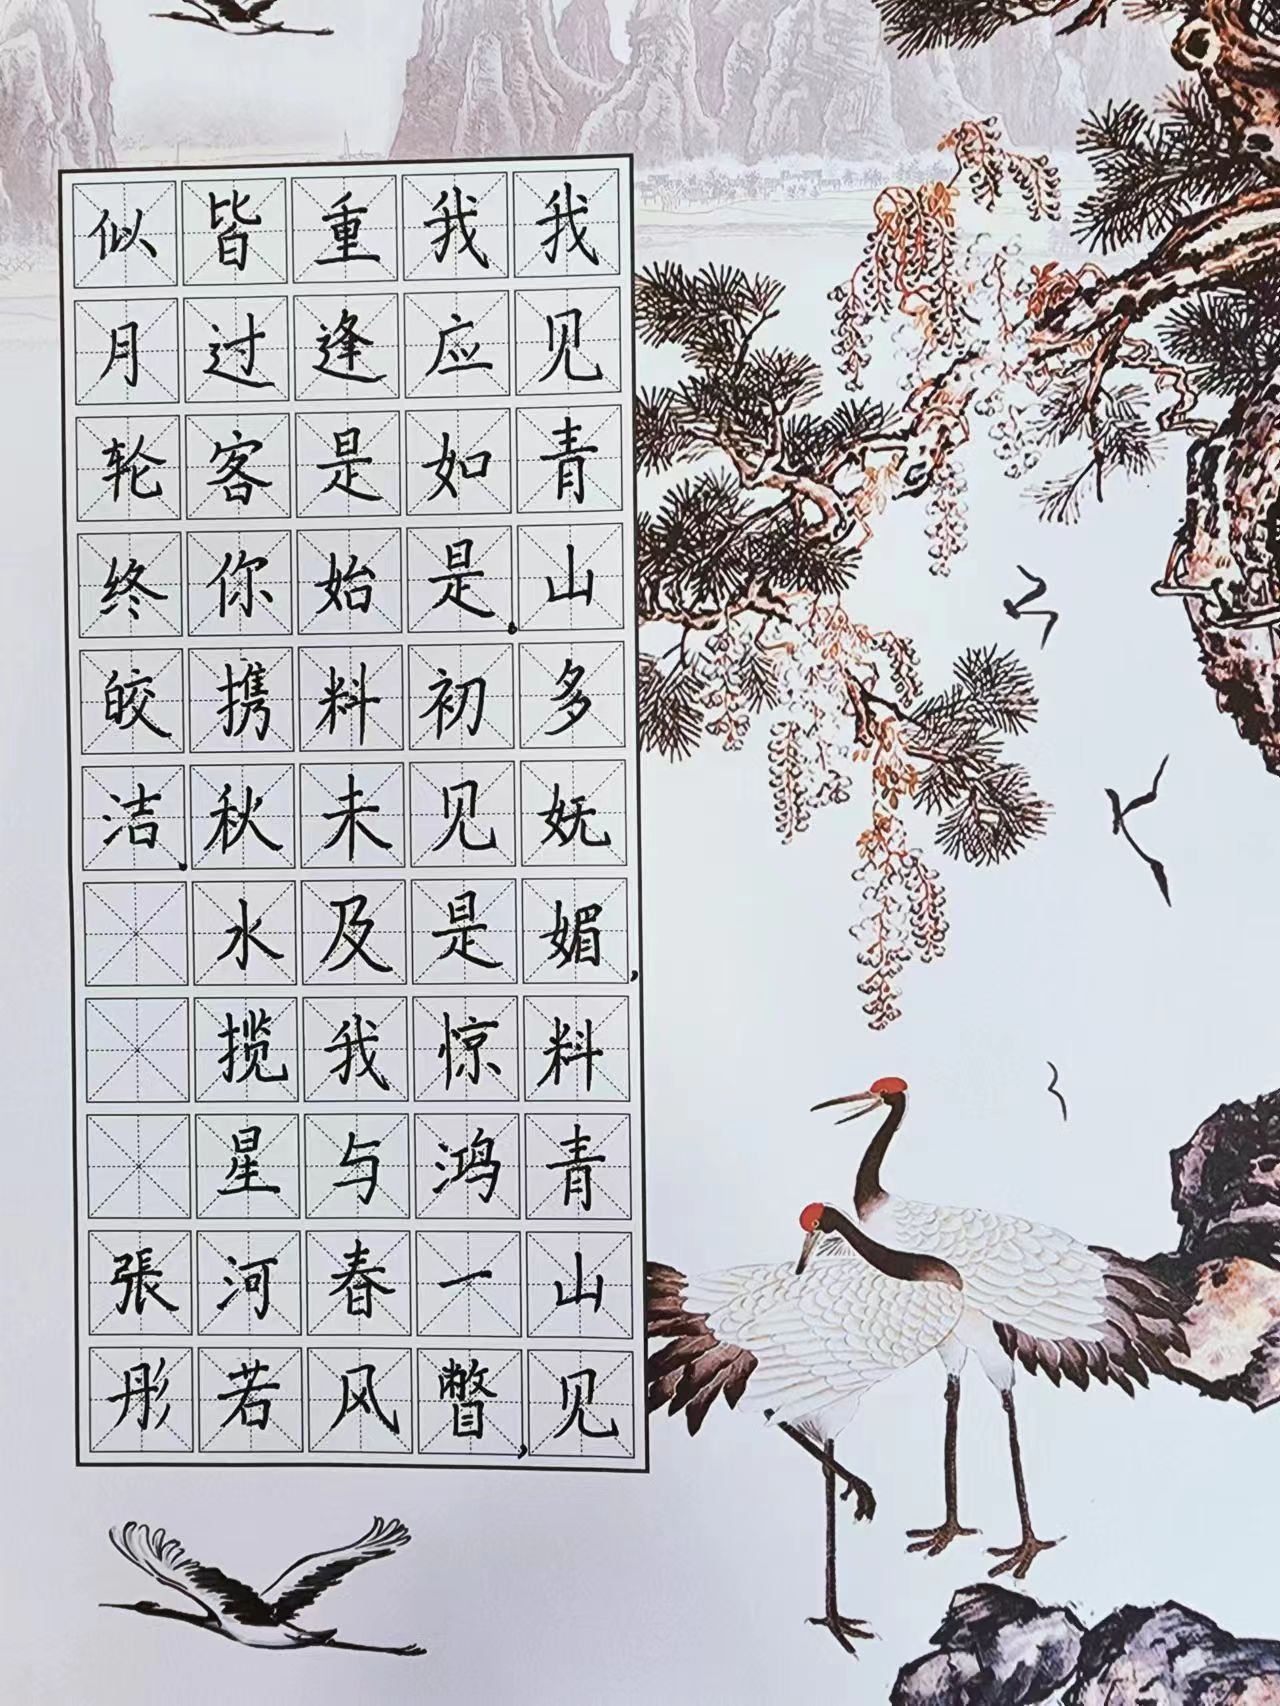 我见青山多妩媚,料青山见
我应如是.初见是惊鸿一瞥,
重逢是始料未及我与春风
皆过客你携秋水揽星河若
似月轮终皎洁.張彤